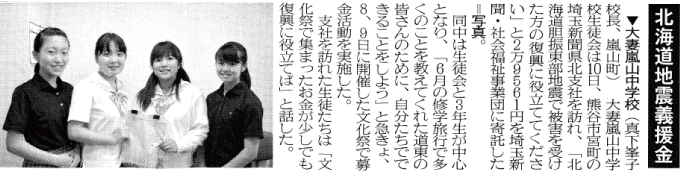 北海道地震義援金
▼大妻嵐山中学校（真下峯子
校長、嵐山町）　大妻嵐山中学
校生徒会は10日、熊谷市宮町の
埼玉新聞県北支社を訪れ、「北
海道胆振東部地震で被害を受け
た方の復興に役立ててくださ
い」と２万９６６１円を埼玉新
聞・社会福祉事業団に寄託した
＝写真。
　同中は生徒会と３年生が中心
となり、「６月の修学旅行で多
くのことを教えてくれた道東の
皆さんのために、自分たちでで
きることをしよう」と急きょ、
８、９日に開催した文化祭で募
金活動を実施した。
　支社を訪れた生徒たちは「文
化祭で集まったお金が少しでも
復興に役立てば」と話した。